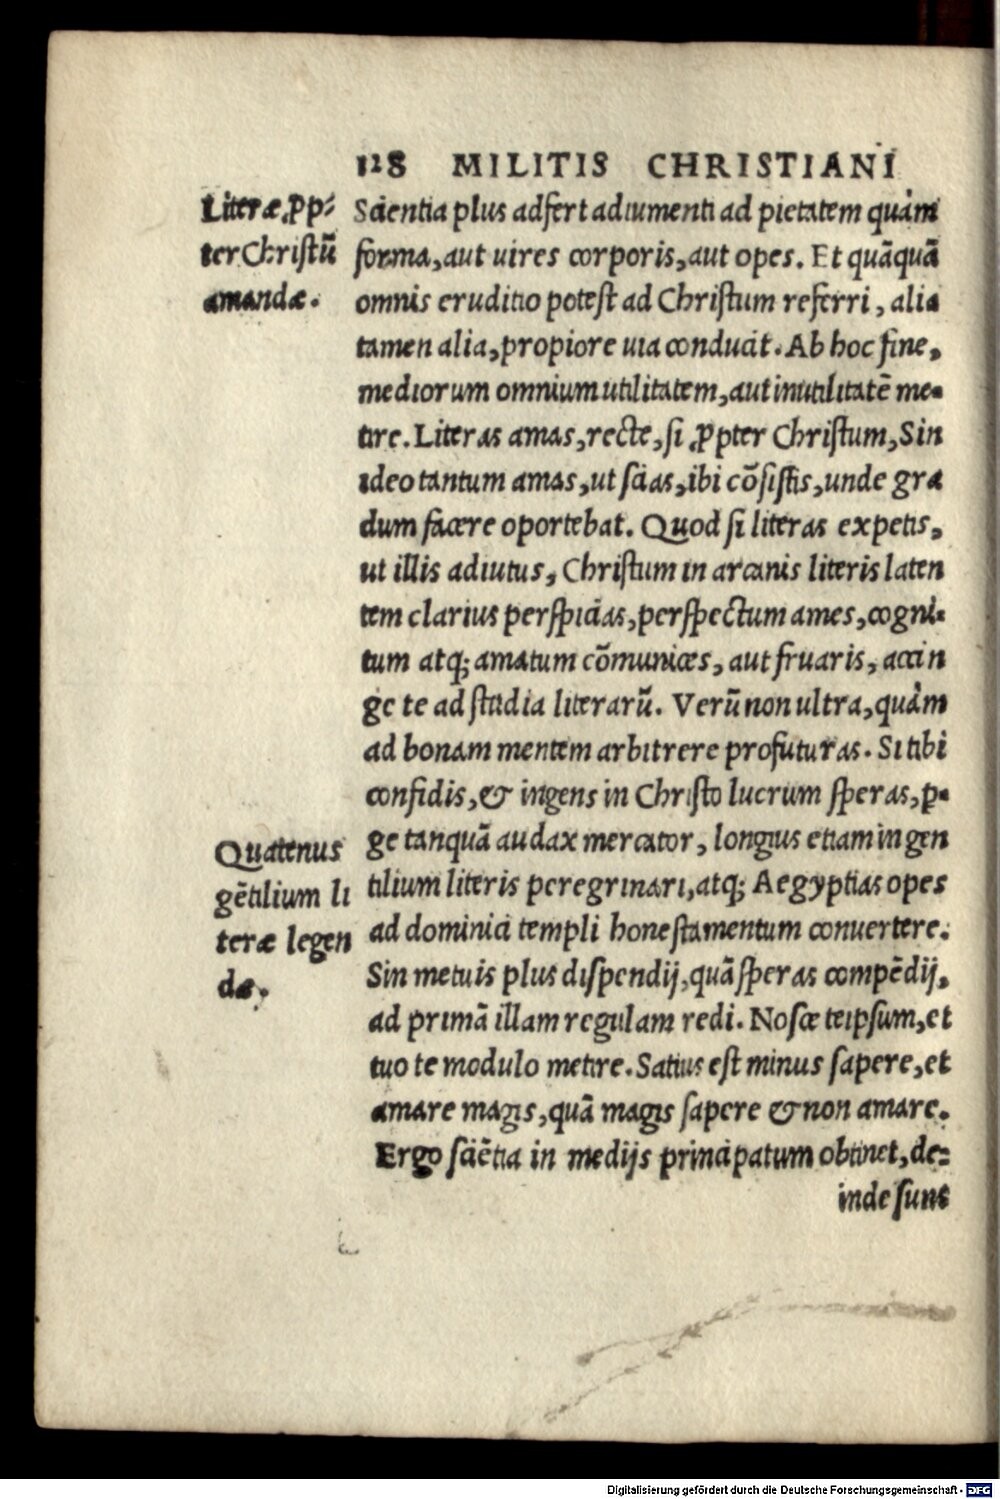 128 MILITIS CHRISTIANI
Literæ ꝓp⸗
ter Christū
amandæ.
Scientia plus adfert adiumenti ad pietatem quàm
forma, aut uires corporis, aut opes. Et quāquā
omnis eruditio potest ad Christum referri, alia
tamen alia, propiore uia conducit. Ab hoc fine,
mediorum omnium utilitatem, aut inutilitatē me-
tire. Literas amas, recte, si ꝓpter Christum, Sin
ideo tantum amas, ut scias, ibi cōsistis, unde gra
dum facere oportebat. Quod si literas expetis,
ut illis adiutus, Christum in arcanis literis laten
tem clarius perspicias, perspectum ames, cogni-
tum atq; amatum cōmunices, aut fruaris, accin
ge te ad studia literarū. Verū non ultra, quàm
ad bonam mentem arbitrere profuturas. Si tibi
confidis, & ingens in Christo lucrum speras, ꝑ-
ge tanquā audax mercator, longius etiam in gen
tilium literis peregrinari, atq; Aegyptias opes
ad dominici templi honestamentum conuertere.
Sin metuis plus dispendij, quā speras compēdij,
ad primā illam regulam redi. Nosce teipsum, et
tuo te modulo metire. Satius est minus sapere, et
amare magis, quā magis sapere & non amare.
Ergo sciētia in medijs principatum obtinet, de⸗
inde sunt
Quatenus
gētilium li
teræ legen
dæ.
Digitalisierung gefördert durch die Deutsche Forschungsgemeinschaft - DFG